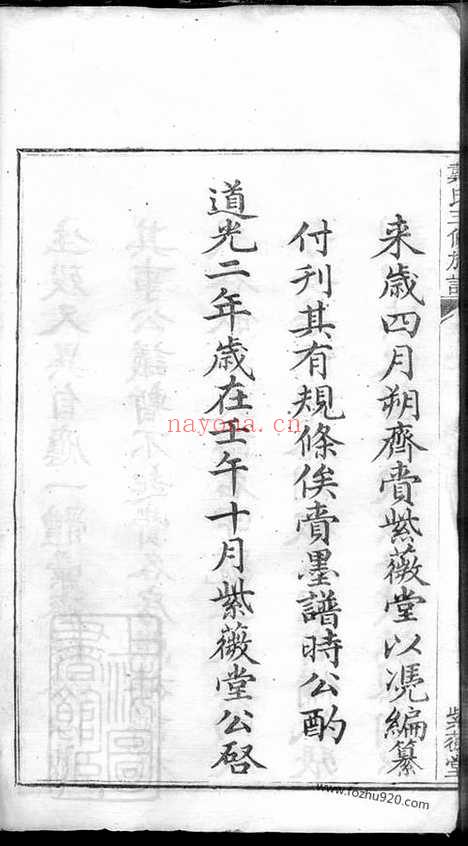 来歲四月朔齊賫紫薇堂以凴編纂
付刊其有規條俟賫墨譜時公酌
道光二年歲在壬午十月紫薇堂公啓
紫薇堂
nayona.cn
www.fozhu920.com